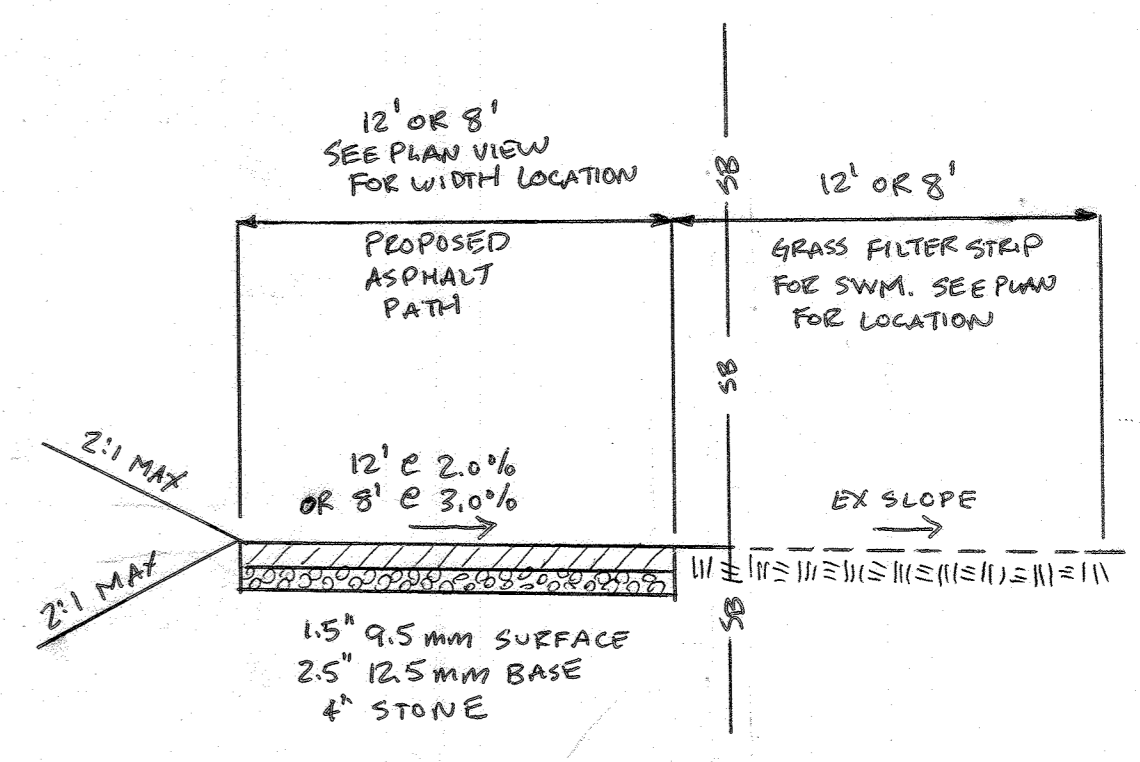 12' OR 8'
SEE PLAN VIEW
FOR WIDTH LOCATION
PROPOSED
ASPHALT
PATH
SB
12' OR 8'
GRASS FILTER STRIP
FOR SWM. SEE PLAN
FOR LOCATION
SB
2:1 MAX
2:1 MAX
12' @ 2.0%
OR 8' @ 3.0%
EX SLOPE
SB
1.5" 9.5 mm SURFACE
2.5" 12.5 mm BASE
4" STONE